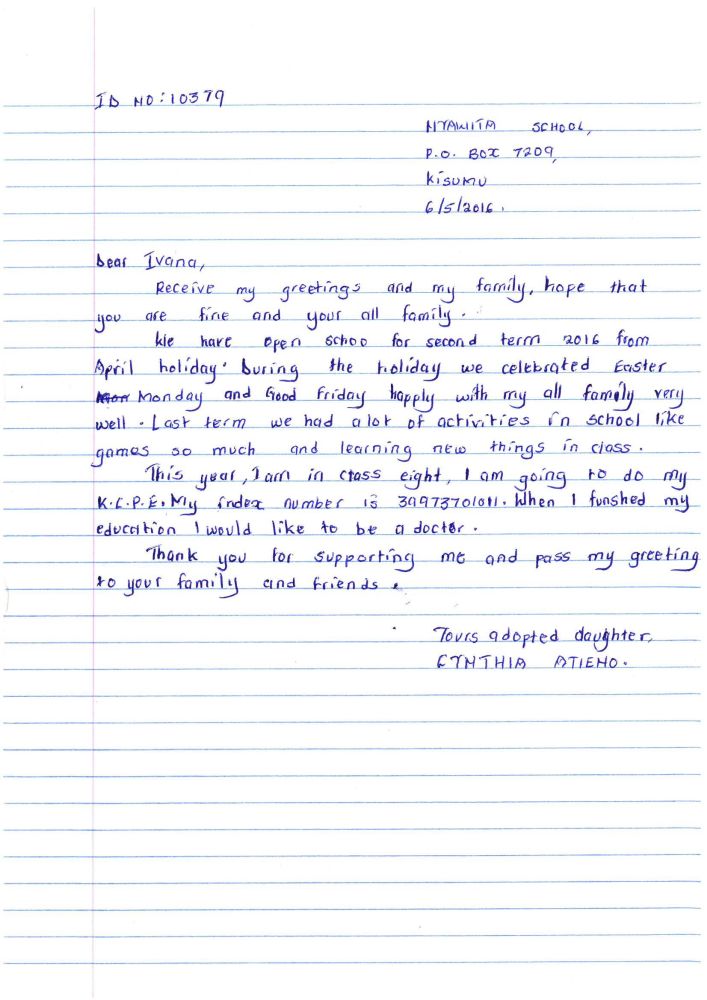 ID NO: 10379
NYAWITA SCHOOL,
P.O. BOX 7209,
KISUMU
6/5/2016.
Dear Ivana,
Receive my greetings and my family, hope that
you are fine and your all family.
We have open schoo for second term 2016 from
April holiday. During the holiday we celebrated Easter
Mon Monday and Good Friday happly with my all family very
well. Last term we had alot of activities in school like
games so much and learning new things in class.
This year, I am in class eight, I am going to do my
K.C.P.E. My index number is When I funshed my
education I would like to be a doctor.
Thank you for supporting me and pass my greeting
to your family and friends.
Yours adopted daughter,
CYNTHIA ATIENO.